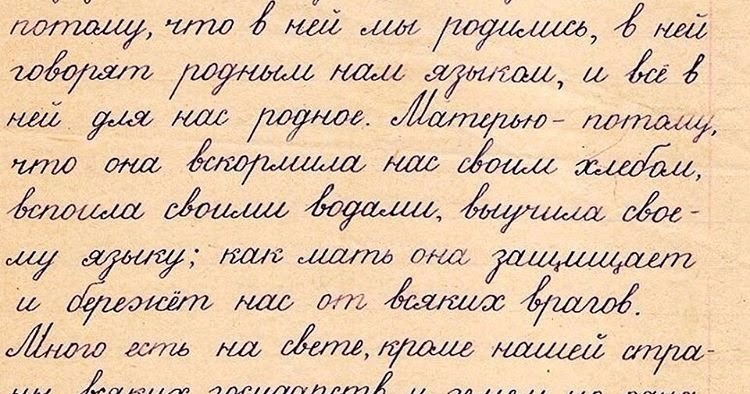 потому, что в ней мы родились, в ней
говорят родным нам языком, и всё в
ней для нас родное. Матерью - потому,
что она вскормила нас своим хлебом,
вспоила своими водами, выучила свое-
му языку; как мать она защищает
и бережёт нас от всяких врагов.
Много есть на свете, кроме нашей стра-
ны всяких государств и